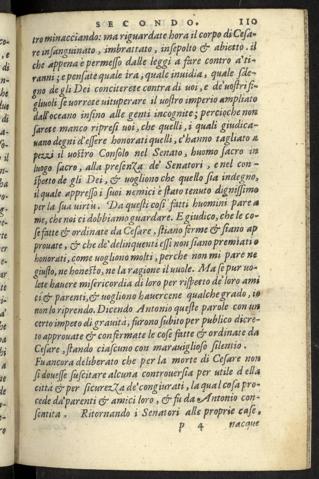 SECONDO. 110
tro minacciando: ma riguardate hora il corpo di Cesa-
re insanguinato, imbrattato, insepolto & abietto. il
che appena è permesso dalle leggi a fare contro a'ti-
ranni; e pensate quale ira, quale inuidia, quale sde-
gno de gli Dei conciterete contra di uoi, e de' uostri fi-
gliuoli se uorrete uituperare il uostro imperio ampliato
dall'oceano insino alle genti incognite; percioche non
sarete manco ripresi uoi, che quelli, i quali giudica-
uano degni d'essere honorati quelli, c'hanno tagliato a
pezzi il uostro Consolo nel Senato, huomo sacro in
luogo sacro, alla presenza de' Senatori, e nel con-
spetto de gli Dei, & uogliono che quello sia indegno,
il quale appresso i suoi nemici è stato tenuto dignissimo
per la sua uirtù. Da questi così fatti huomini pare a
me, che noi ci dobbiamo guardare. E giudico, che le co-
se fatte & ordinate da Cesare, stiano ferme & siano ap
prouate, & che de' delinquenti essi non siano premiati o
honorati, come uogliono molti, perche non mi pare ne
giusto, ne honesto, ne la ragione il uuole. Ma se pur uo-
lete hauere misericordia di loro per rispetto de' loro ami
ci & parenti, & uogliono hauercene qualche grado, io
non lo riprendo. Dicendo Antonio queste parole con un
certo impeto di grauità, furono subito per publico dicre-
to approuate & confermate le cose fatte & ordinate da
Cesare, stando ciascuno con marauiglioso silentio.
Fu ancora deliberato che per la morte di Cesare non
si douesse suscitare alcuna controuersia per utile d ella
città & per sicurezza de' congiurati, la qual cosa pro-
cede da' parenti & amici loro, & fu da Antonio con-
sentita. Ritornando i Senatori alle proprie case,
P 4 nacque